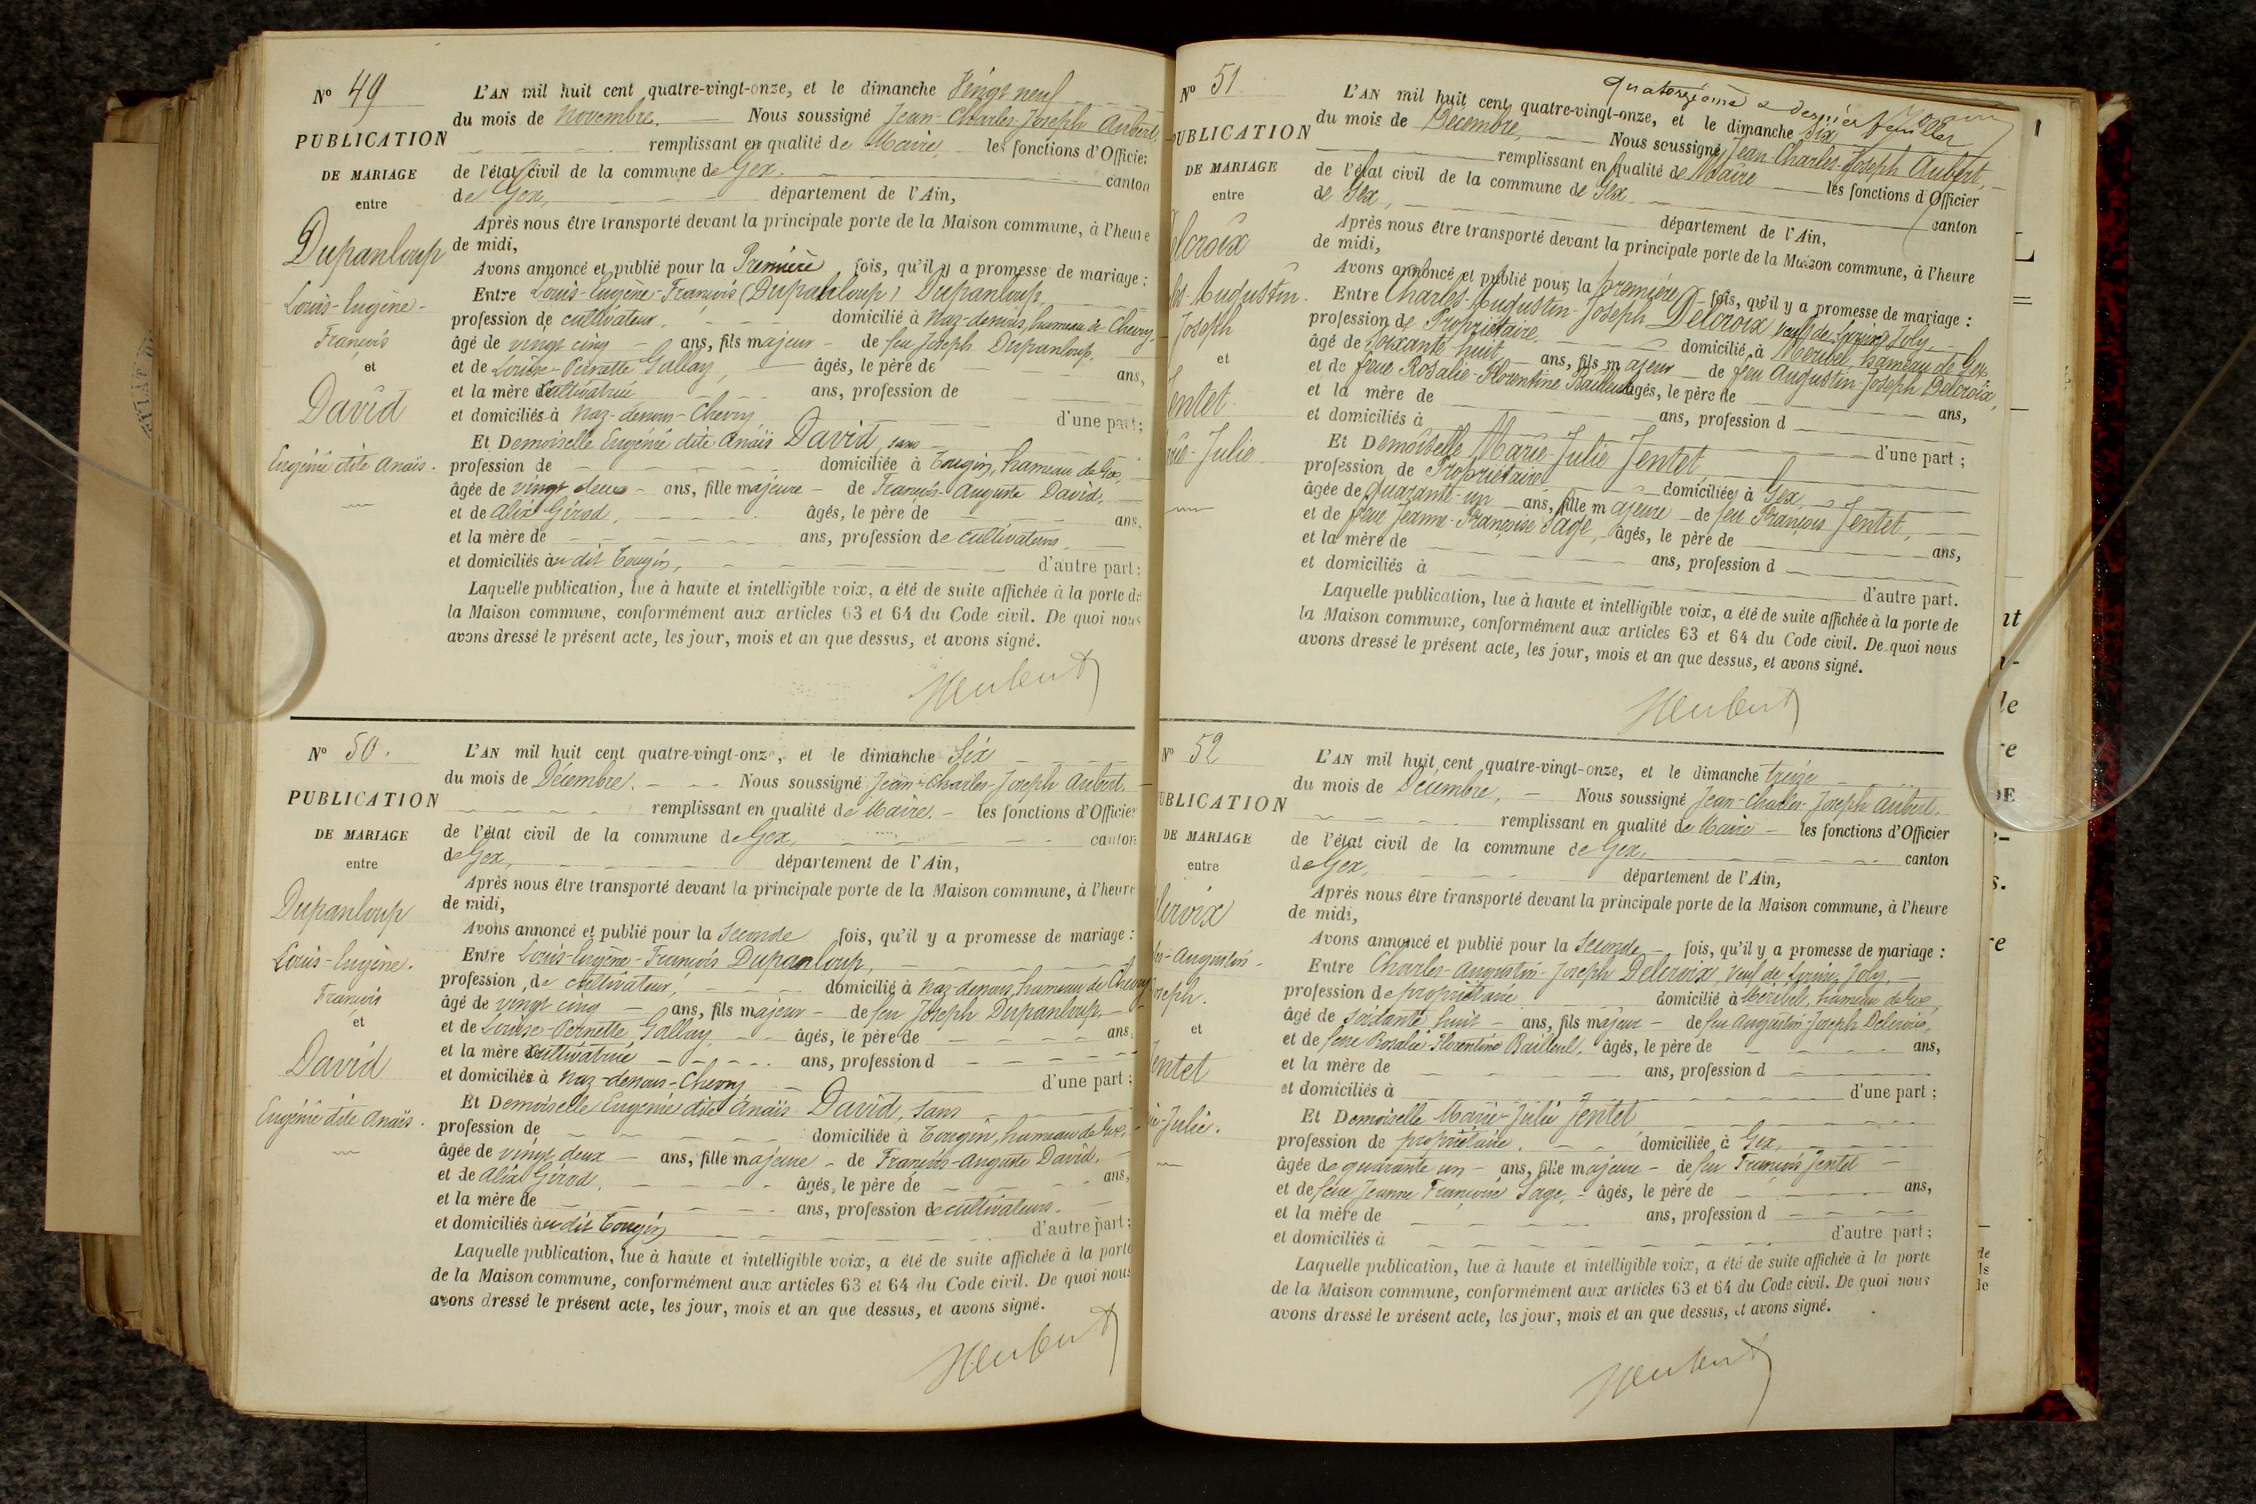 N° 49
PUBLICATION
DE MARIAGE
entre
Dupanloup
Louis-Eugène-
François
et
David
Eugénie dite Anaïs.
L'AN mil huit cent quatre-vingt-onze, et le dimanche Vingt neuf
du mois de Novembre. Nous soussigné Jean-Charles-Joseph Aubert,
remplissant en qualité de Maire, les fonctions d'Officier
de l'état civil de la commune de Gex. canton
de Gex, département de l'Ain,
Après nous être transporté devant la principale porte de la Maison commune, à l'heure
de midi,
Avons annoncé et publié pour la Première fois, qu'il y a promesse de mariage :
Entre Louis-Eugène-François (Dupanloup) Dupanloup,
profession de cultivateur, domicilié à Naz-dessous, hameau de Chevry,
âgé de vingt cinq ans, fils majeur de feu Joseph Dupanloup,
et de Louise-Pernette Gallay, âgés, le père de ans,
et la mère cultivatrice ans, profession de
et domiciliés à Naz-dessous-Chevry d'une part ;
Et Demoiselle Eugénie dite Anaïs David, sans
profession de domiciliée à Tougin, hameau de Gex,
âgée de vingt deux ans, fille majeure de François-Auguste David,
et de Alix Girod, âgés, le père de ans,
et la mère de ans, profession de cultivateurs
et domiciliés audit Tougin, d'autre part ;
Laquelle publication, lue à haute et intelligible voix, a été de suite affichée à la porte de
la Maison commune, conformément aux articles 63 et 64 du Code civil. De quoi nous
avons dressé le présent acte, les jour, mois et an que dessus, et avons signé.
N° 50.
PUBLICATION
DE MARIAGE
entre
Dupanloup
Louis-Eugène.
François
et
David
Eugénie dite Anaïs.
L'AN mil huit cent quatre-vingt-onze, et le dimanche Six
du mois de Décembre. Nous soussigné Jean-Charles-Joseph Aubert.
remplissant en qualité de Maire. les fonctions d'Officier
de l'état civil de la commune de Gex, canton
de Gex, département de l'Ain,
Après nous être transporté devant la principale porte de la Maison commune, à l'heure
de midi,
Avons annoncé et publié pour la Seconde fois, qu'il y a promesse de mariage :
Entre Louis-Eugène-François Dupanloup,
profession de cultivateur, domicilié à Naz-dessous, hameau de Chevry
âgé de vingt cinq ans, fils majeur de feu Joseph Dupanloup,
et de Louise-Pernette Gallay âgés, le père de ans
et la mère cultivatrice ans, profession d
et domiciliés à Naz-dessous-Chevry d'une part ;
Et Demoiselle Eugénie dite Anaïs David, sans
profession de domiciliée à Tougin, hameau de Gex,
âgée de vingt deux ans, fille majeure de François-Auguste David.
et de Alix Girod, âgés, le père de ans,
et la mère de ans, profession de cultivateurs.
et domiciliés audit Tougin d'autre part ;
Laquelle publication, lue à haute et intelligible voix, a été de suite affichée à la porte
de la Maison commune, conformément aux articles 63 et 64 du Code civil. De quoi nous
avons dressé le présent acte, les jour, mois et an que dessus, et avons signé.
Quatorzième & dernier feuillet
N° 51
PUBLICATION
DE MARIAGE
entre
elcroix
les-Augustin.
Joseph
et
Jentet
rie-Julie
L'AN mil huit cent quatre-vingt-onze, et le dimanche Six
du mois de Décembre, Nous soussigné Jean-Charles-Joseph Aubert,
remplissant en qualité de Maire les fonctions d'Officier
de l'état civil de la commune de Gex canton
de Gex, département de l'Ain,
Après nous être transporté devant la principale porte de la Maison commune, à l'heure
de midi,
Avons annoncé et publié pour la première fois, qu'il y a promesse de mariage :
Entre Charles-Augustin-Joseph Delcroix veuf de Joly,
profession de Propriétaire. domicilié à Méribel, hameau de Gex
âgé de Soixante huit ans, fils majeur de feu Augustin-Joseph Delcroix,
et de feue Rosalie-Florentine Bailleul âgés, le père de ans,
et la mère de ans, profession d
et domiciliés à d'une part ;
Et Demoiselle Marie-Julie Jentet
profession de Propriétaire domiciliée à Gex
âgée de quarante-un ans, fille majeure de feu François Jentet,
et de feue Jeanne-Françoise Sage, âgés, le père de ans,
et la mère de ans, profession d
et domiciliés à d'autre part.
Laquelle publication, lue à haute et intelligible voix, a été de suite affichée à la porte de
la Maison commune, conformément aux articles 63 et 64 du Code civil. De quoi nous
avons dressé le présent acte, les jour, mois et an que dessus, et avons signé.
N° 52
PUBLICATION
DE MARIAGE
entre
lcroix
les-Augustin-
Joseph.
et
Jentet
rie-Julie.
L'AN mil huit cent quatre-vingt-onze, et le dimanche treize
du mois de Décembre, Nous soussigné Jean-Charles-Joseph Aubert.
remplissant en qualité de Maire les fonctions d'Officier
de l'état civil de la commune de Gex, canton
de Gex, département de l'Ain,
Après nous être transporté devant la principale porte de la Maison commune, à l'heure
de midi,
Avons annoncé et publié pour la Seconde fois, qu'il y a promesse de mariage :
Entre Charles-Augustin-Joseph Delcroix, veuf de Joly,
profession de propriétaire domicilié à Méribel, hameau de Gex,
âgé de Soixante huit ans, fils majeur de feu Augustin-Joseph Delcroix,
et de feue Rosalie-Florentine Bailleul, âgés, le père de ans,
et la mère de ans, profession d
et domiciliés à d'une part ;
Et Demoiselle Marie-Julie Jentet
profession de propriétaire. domiciliée à Gex,
âgée de quarante un ans, fille majeure de feu François Jentet
et de feue Jeanne Françoise Sage, âgés, le père de ans,
et la mère de ans, profession d
et domiciliés à d'autre part ;
Laquelle publication, lue à haute et intelligible voix, a été de suite affichée à la porte
de la Maison commune, conformément aux articles 63 et 64 du Code civil. De quoi nous
avons dressé le présent acte, les jour, mois et an que dessus, et avons signé.